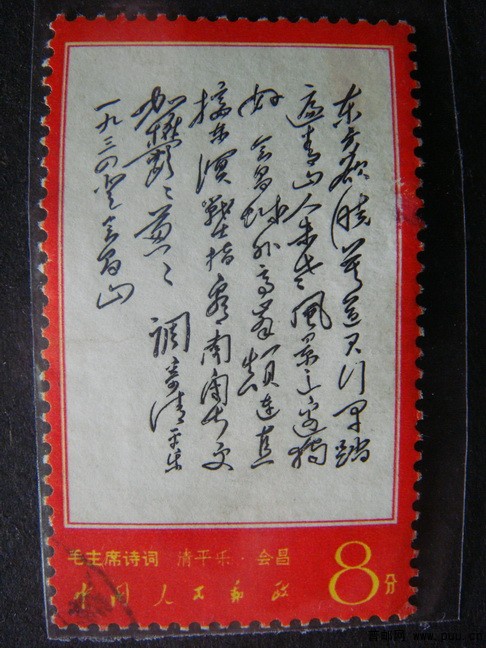 东方欲晓莫道君行早踏
遍青山人未老风景这边独
好会昌城外高峰颠连直
接东溟战士指看南粤更
加鬱〻葱〻 调寄清平乐
一九三四登会昌山
毛主席诗词 清平乐·会昌
中国人民邮政
8分